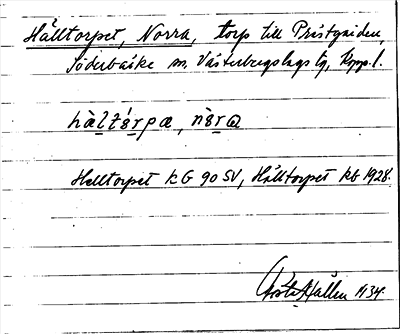 Hälltorpet, Norra, torp till Prästgården,
Söderbärke sn. Västerbergslags tg, Kppl.
hàltɔ́rpa, nɔ̀ra
Helltorpet KG 90 SV, Hälltorpet kb 1928.
Gösta Hallen 1934